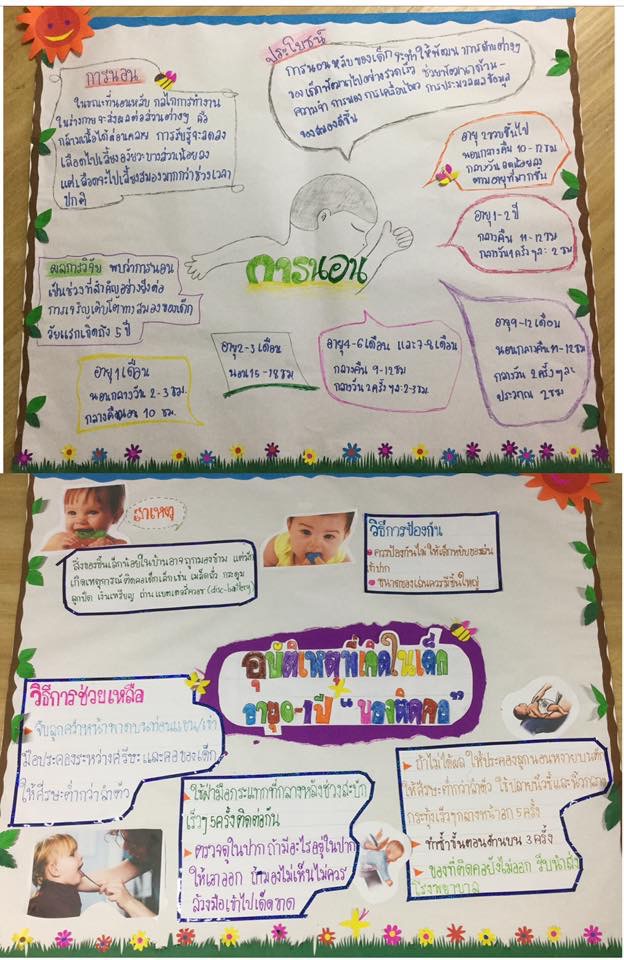 การนอน
ในขณะที่นอนหลับ กลไกการทำงาน
ในร่างกายจะส่งผลต่อส่วนต่างๆ คือ
กล้ามเนื้อได้ผ่อนคลาย การรับรู้จะลดลง
เลือดไปเลี้ยงอวัยวะบางส่วนน้อยลง
แต่เลือดจะไปเลี้ยงสมองมากกว่าช่วงเวลา
ปกติ
ประโยชน์
การนอนหลับของเด็กจะทำให้พัฒนาการด้านต่างๆ
ของเด็กพัฒนาไปอย่างรวดเร็ว ช่วยพัฒนาด้าน-
ความจำ การมอง การเคลื่อนไหว การประมวลผลข้อมูล
ของสมองดีขึ้น
อายุ 2 ขวบขึ้นไป
นอนกลางคืน 10-12 ชม
กลางวัน ลดน้อยลง
ตามอายุที่มากขึ้น
อายุ 1-2 ปี
กลางคืน 11-12 ชม
กลางวัน 1 ครั้งๆละ 2 ชม
การนอน
ผลการวิจัย พบว่าการนอน
เป็นช่วงที่สำคัญอย่างยิ่งต่อ
การเจริญเติบโตทางสมองของเด็ก
วัยแรกเกิดถึง 5 ปี
อายุ 1 เดือน
นอนกลางวัน 2-3 ชม.
กลางคืนนอน 10 ชม.
อายุ 2-3 เดือน
นอน 15-18 ชม
อายุ 4-6 เดือน และ 7-8 เดือน
กลางคืน 9-12 ชม
กลางวัน 2 ครั้งๆละ 2-3 ชม.
อายุ 9-12 เดือน
นอนกลางคืน 11-12 ชม
กลางวัน 2 ครั้งๆละ
ประมาณ 2 ชม
สาเหตุ
สิ่งของชิ้นเล็กน้อยในบ้านอาจถูกมองข้าม แต่มัก
เกิดเหตุการณ์ติดคอเด็กเล็ก เช่น เมล็ดถั่ว กระดุม
ลูกปัด เงินเหรียญ ถ่านแบตเตอรี่ (disc-battery)
วิธีการป้องกัน
ควรป้องกันไม่ให้เด็กหยิบของเล่น
เข้าปาก
ขนาดของเล่นควรมีชิ้นใหญ่
อุบัติเหตุที่เกิดในเด็ก
อายุ 0-1 ปี "ของติดคอ"
วิธีการช่วยเหลือ
จับลูกคว่ำหน้าพาดบนท่อนแขน/เข่า
มือประคองระหว่างศรีษะและคอของเด็ก
ให้ศีรษะต่ำกว่าลำตัว
ใช้ฝ่ามือกระแทกที่กลางหลังช่วงสะบัก
เร็วๆ 5 ครั้งติดต่อกัน
ตรวจดูในปาก ถ้ามีอะไรอยู่ในปาก
ให้เอาออก ถ้ามองไม่เห็นไม่ควร
ล้วงมือเข้าไปเด็ดขาด
ถ้าไม่ได้ผล ให้ประคองลูกนอนหงายบนตัก
ให้ศีรษะต่ำกว่าลำตัว ใช้ปลายนิ้วชี้และนิ้วกลาง
กระทุ้งเร็วๆ กลางหน้าอก 5 ครั้ง
ทำซ้ำขั้นตอนด้านบน 3 ครั้ง
ของที่ติดคอยังไม่ออก รีบนำส่ง
โรงพยาบาล